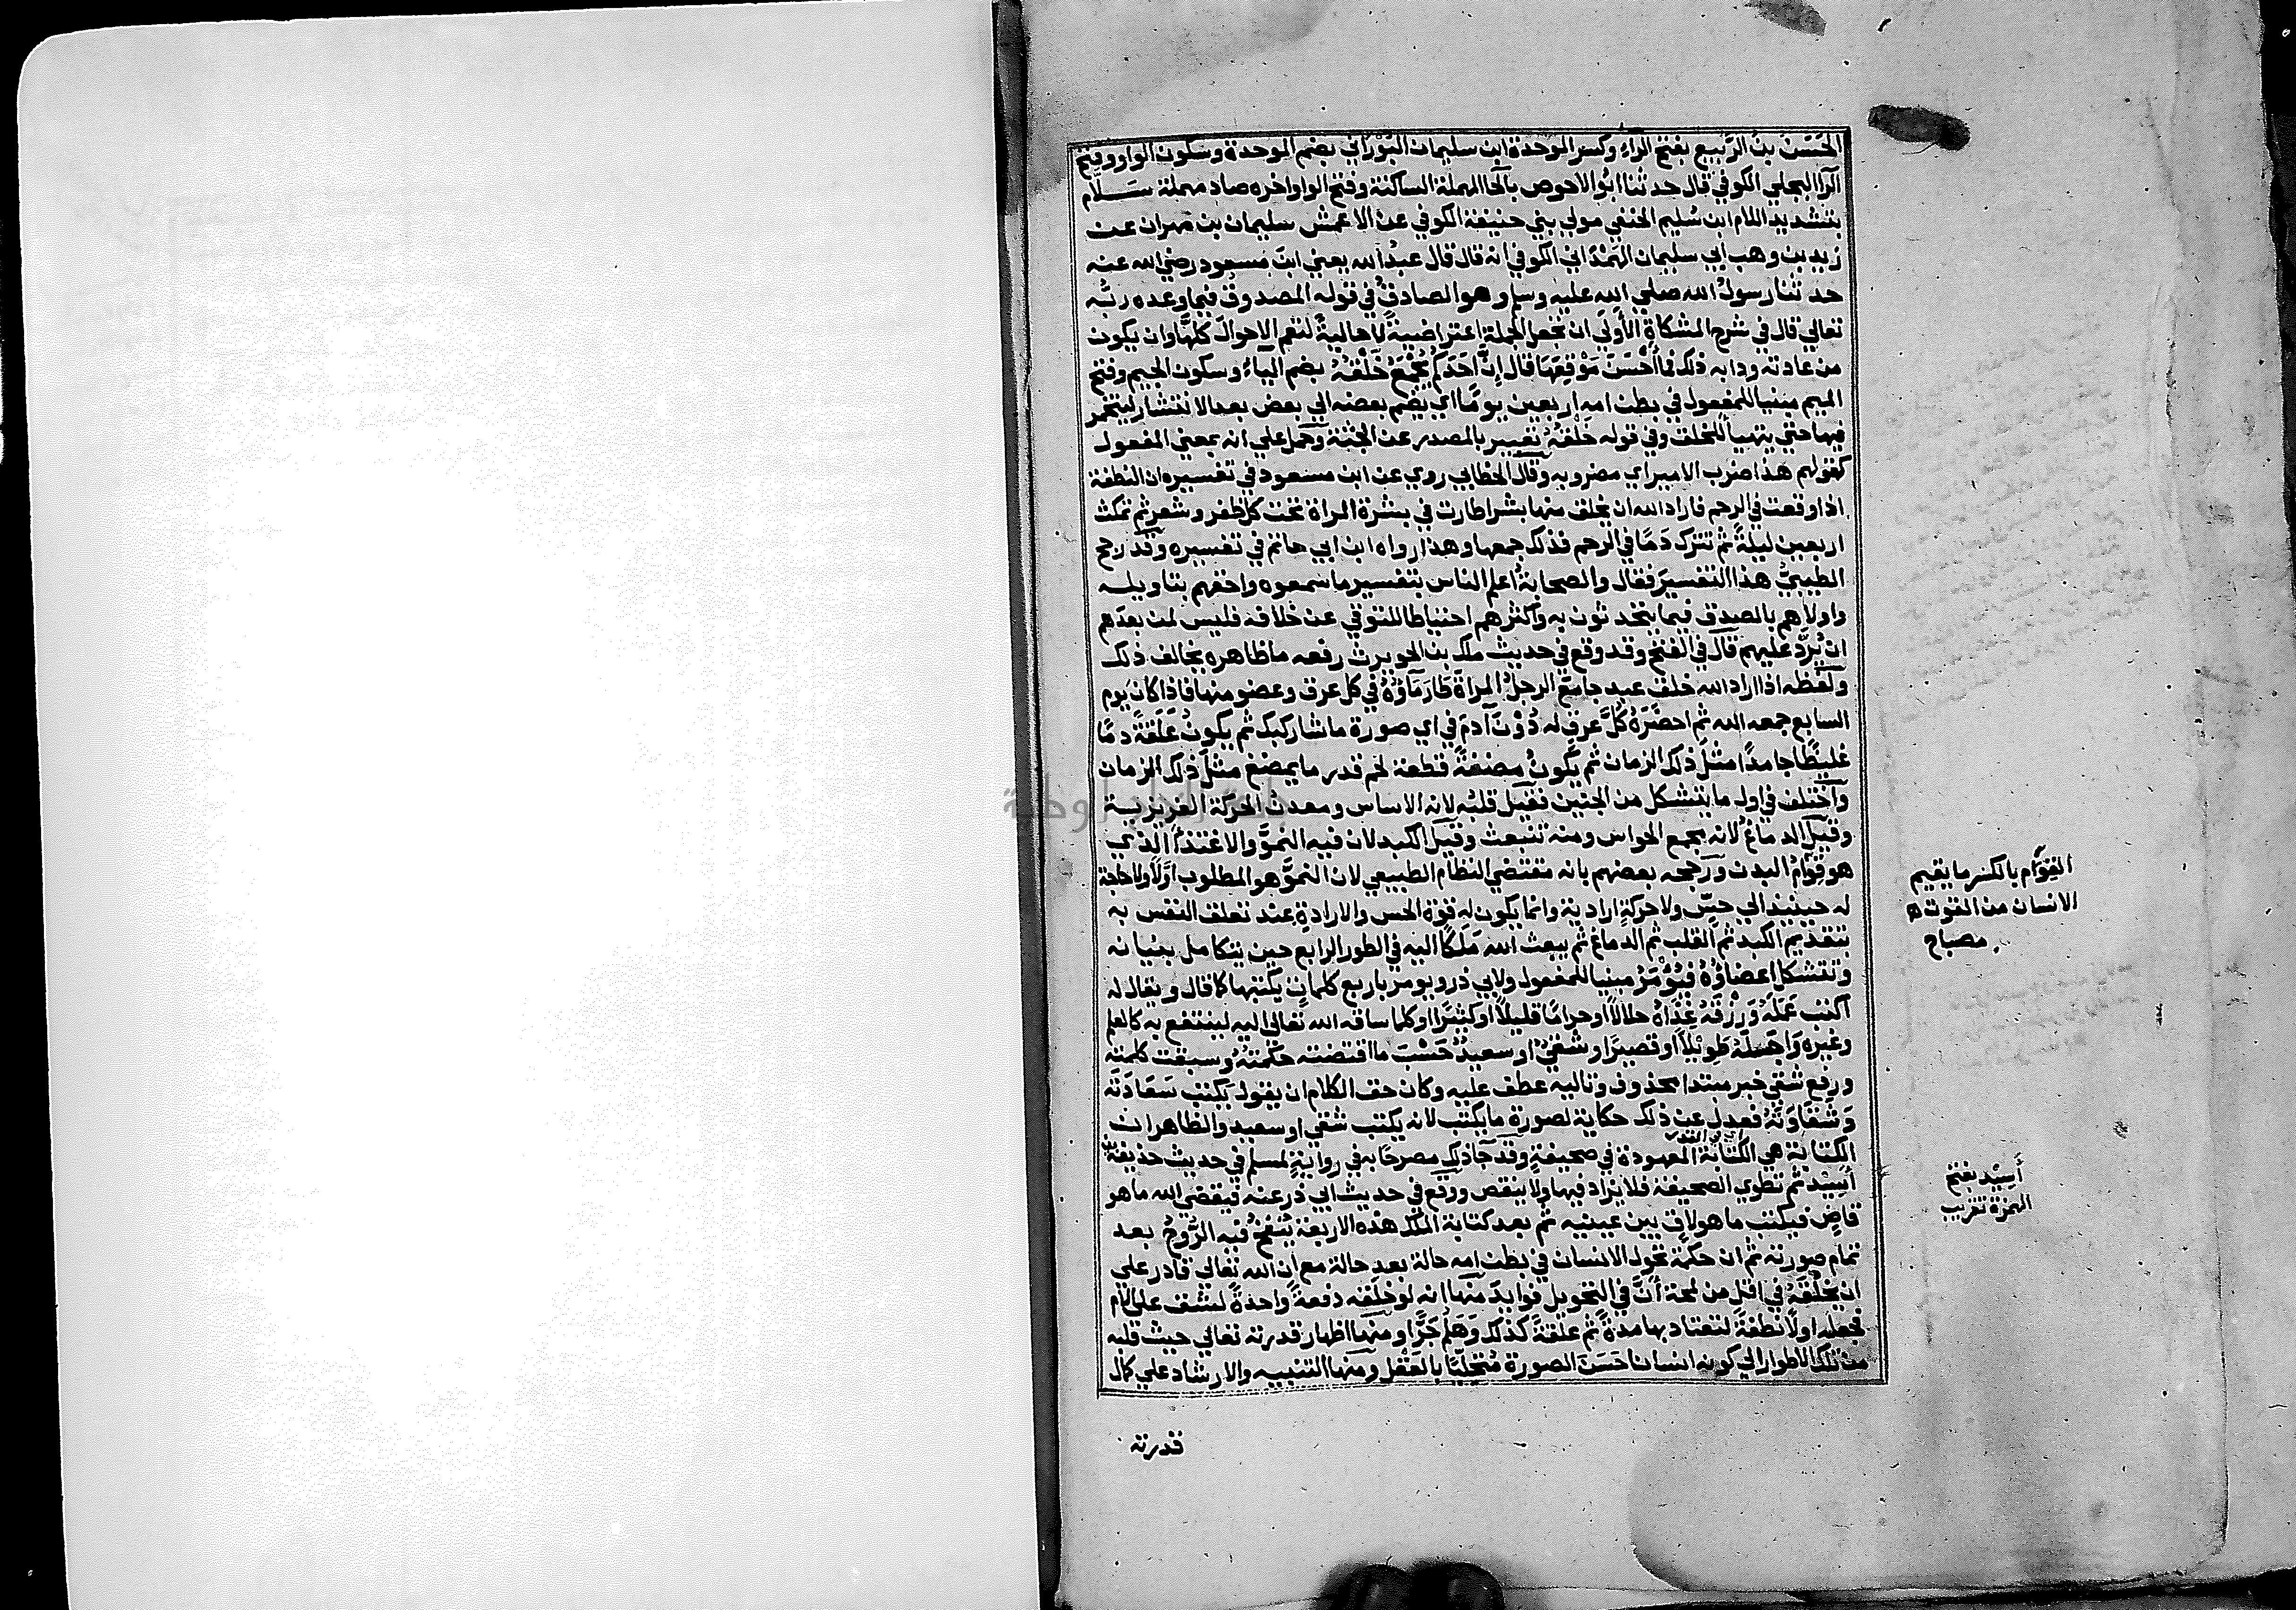 الحَسَنُ بنُ الرَّبِيع بفتح الراء وكسر الموحدة ابن سليمان البُوْرَاني بضم الموحدة وسكون الواو وفتح
الرا البجلي الكوفي قال حدثنا ابُو الاحوص بالحا المهملة الساكنة وفتح الواو اخره صاد مهملة سَلَّام
بتشديد اللام ابن سُليم الحنفي مولي بني حنيفة الكوفي عن الاعمش سليمان بن مهران عن
زيد بن وهب ابي سليمان الهَمْدَاني الكوفي انه قال قال عبدُ الله يعني ابنَ مسعود رضي الله عنه
حدثنا رسولُ الله صلي الله عليه وسلم وهو الصادقُ في قوله المصدوق فيما وعده ربُّه
تعالي قال في شرح المشكاة الأَولَي ان تجعل الجملة اعتراضيةً لا حاليةً لتعم الاحوالَ كلهَّا وان يكون
من عادته ودابه ذلك فما أحْسَنَ مَوْقِعَهَا قال إنَّ أحَدَكم يُجْمَعُ خَلْقُهُ بضم الياء وسكون الجيم وفتح
الميم مبنيا للمفعول في بطن امه اربعين يومًا اي يضم بعضه الي بعض بعد الانتشار ليتخمر
فيها حتي يتهيأ للخلق وفي قوله خلقُهُ تعبير بالمصدر عن الجثة وحمل علي انه بمعني المفعول
كقولهم هذا ضرب الامير اي مضروبه وقال الخطابي روي عن ابن مسعود في تفسيره ان النطفة
اذا وقعت في الرحم فاراد الله ان يخلق منها بشرا طارت في بشرة المراة تحت كل ظفر وشعر ثم تمكث
اربعين ليلةً ثم تنزل دَمًا في الرحم فذلك جمعها وهذا رواه ابن ابي حاتم في تفسيره وقد رجح
الطيبيُّ هذا التفسيرَ فقال والصحابةُ اعلم الناس بتفسير ما سمعوه واحقهم بتاويله
واولاهم بالصدق فيما يتحدثون به واكثرهم احتياطا للتوقي عن خلافه فليس لمن بعدَهم
ان يَرُدَّ عليهم قال في الفتح وقد وقع في حديث ملك بن الحويرث رفعه ما ظاهره يخالف ذلك
ولفظه اذا اراد الله خلق عبد جامَعَ الرجلُ المراةَ طارَ مَاؤهُ في كل عرق وعضو منها فاذا كان يوم
السابع جمعه الله ثم احضَرَهُ كُلَّ عرقٍ له دُوْنَ آدمَ في اي صورة ما شا ركبك ثم يكونُ عَلَقةً دمًا
غليظًا جامدًا مثلَ ذلك الزمان ثم يكونُ مضغةً قطعة لحم قدر ما يمضغ مثلَ ذلك الزمان
واختلف في اول ما يتشكل من الجنين فقيل قلبُه لانه الاساس ومعدن الحركة الغريزية
وقيل الدماغُ لانه يجمع الحواس ومنه تنبعث وقيل الكبد لان فيه النموَّ والاغتذاُ الذي
هو قِوَامُ البدن ورجحه بعضهم بانه مقتضي النظام الطبيعي لان النموَّ هو المطلوب اوَّلاً ولا حاجة
له حينيذ الي حِسٍّ ولا حركةٍ ارادية وانما يكون له قوة الحس والارادةِ عند تعلق النفس به
بتقديم الكبد ثم القلب ثم الدماغ ثم يبعث الله مَلَكًا اليه في الطور الرابع حين يتكامل بنيانه
وتتشكل اعضاؤهُ فيُؤْمَرُ مبنيا للمفعول ولابي ذر ويومر باربع كلماتٍ يكتبها كما قال ويقال له
اكتب عَمَلَهُ وَرِزْقَهُ غِذَاهُ حلالاً او حرامًا قليلاً او كثيرًا وكلما ساقه الله تعالي اليه لينتفع به كالعلم
وغيره وَاَجَلَهُ طويلاً او قصيرًا وشقيٌّ او سعيدٌ حَسْبَ ما اقتضته حكمتُهُ وسبقت كلمته
ورفع شقي خبر مبتدا محذوف وتاليه عطف عليه وكان حق الكلام ان يقول يكتب سَعَادَتَه
وَشَقَاوَتَهُ فعدل عن ذلك حكاية لصورة ما يكتب لانه يكتب شقي او سعيد والظاهر ان
الكتابة هي الكتابة المعهودة في صحيفةٍ وقد جا ذلك مصرحًا به في روايةٍ لمسلم في حديث حذيفة بن
أَسِيْد ثم تطوي الصحيفة فلا يزاد فيها ولا ينقص ووقع في حديث ابي ذر عنه فيقضي الله ما هو
قاضٍ فيكتب ما هو لاقٍ بين عينيه ثم بعد كتابة الملك هذه الاربعة يُنْفَخُ فيه الرُّوحُ بعد
تمام صورته ثم ان حكمة تحول الانسان في بطن امه حالة بعد حالة مع ان الله تعالي قادر علي
ان يخلُقَهُ في اقل من لمحة أنَّ في التحويل فوايدَ منها انه لو خلقه دفعةً واحدةً لشق علي الام
فجعله اولاً نطفةً لتعتاد بها مدةً ثم علقةً كذلك وَهَلُمَّ جَرًّا ومنها اظهار قدرته تعالي حيث قلبه
من تلك الاطوار الي كونه انسانا حَسَنَ الصورة مُتَحَلِّيًا بالعَقْل ومنها التنبيه والارشاد علي كمال
قدرته
القِوَام بالكسر ما يقيم
الانسان من القوت ه
مصباح
أَسِيْد بفتح
الهمزة تقريب